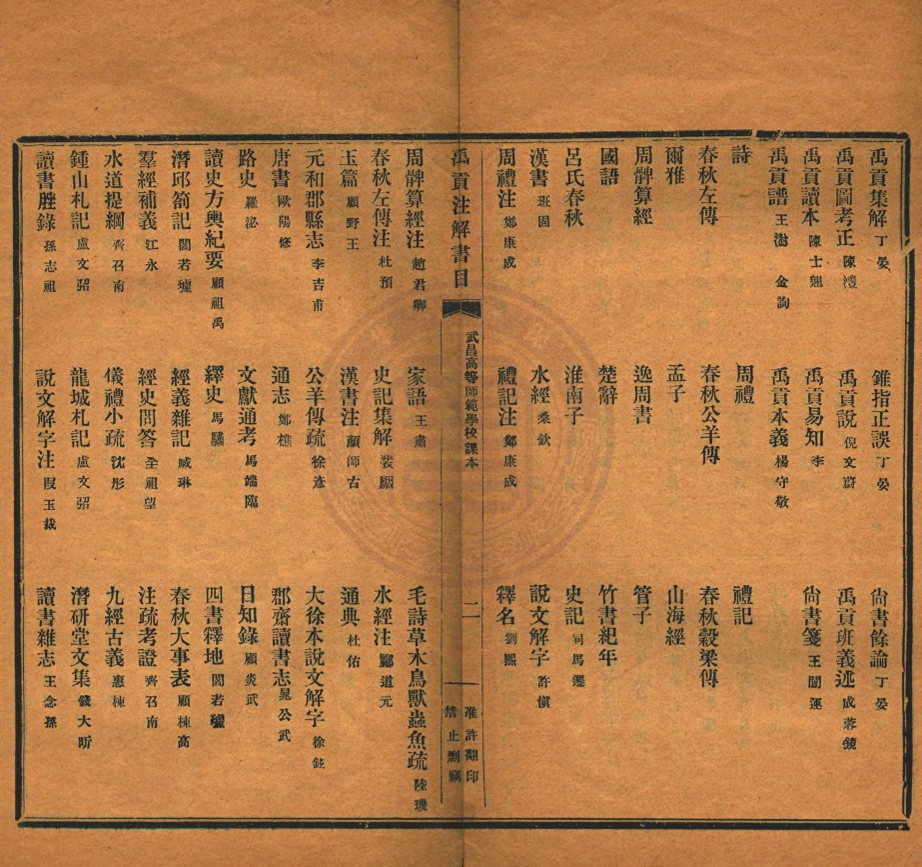 禹貢集解 丁晏 錐指正誤 丁晏 尙書餘論 丁晏
禹貢圖考正 陳澧 禹貢說 倪文蔚 禹貢班義述 成蓉鏡
禹貢讀本 陳士翹 禹貢易知 李 尙書箋 王闓運
禹貢譜 王澍 金詢 禹貢本義 楊守敬
詩 周禮 禮記
春秋左傳 春秋公羊傳 春秋穀梁傳
爾雅 孟子 山海經
周髀算經 逸周書 管子
國語 楚辭 竹書紀年
呂氏春秋 淮南子 史記 司馬遷
漢書 班固 水經 桑欽 說文解字 許愼
周禮注 鄭康成 禮記注 鄭康成 釋名 劉熙
禹貢注解書目 武昌高等師範學校課本 二 准許翻印 禁止剽竊
周髀算經注 趙君卿 家語 王肅 毛詩草木鳥獸蟲魚疏 陸璣
春秋左傳注 杜預 史記集解 裴駰 水經注 酈道元
玉篇 顧野王 漢書注 顏師古 通典 杜佑
元和郡縣志 李吉甫 公羊傳疏 徐彥 大徐本說文解字 徐鉉
唐書 歐陽修 通志 鄭樵 郡齋讀書志 晁公武
路史 羅泌 文獻通考 馬端臨 日知錄 顧炎武
讀史方輿紀要 顧祖禹 繹史 馬驌 四書釋地 閻若璩
潛邱箚記 閻若璩 經義雜記 臧琳 春秋大事表 顧棟高
羣經補義 江永 經史問答 全祖望 注疏考證 齊召南
水道提綱 齊召南 儀禮小疏 沈彤 九經古義 惠棟
鍾山札記 盧文弨 龍城札記 盧文弨 潛研堂文集 錢大昕
讀書脞錄 孫志祖 說文解字注 段玉裁 讀書雜志 王念孫